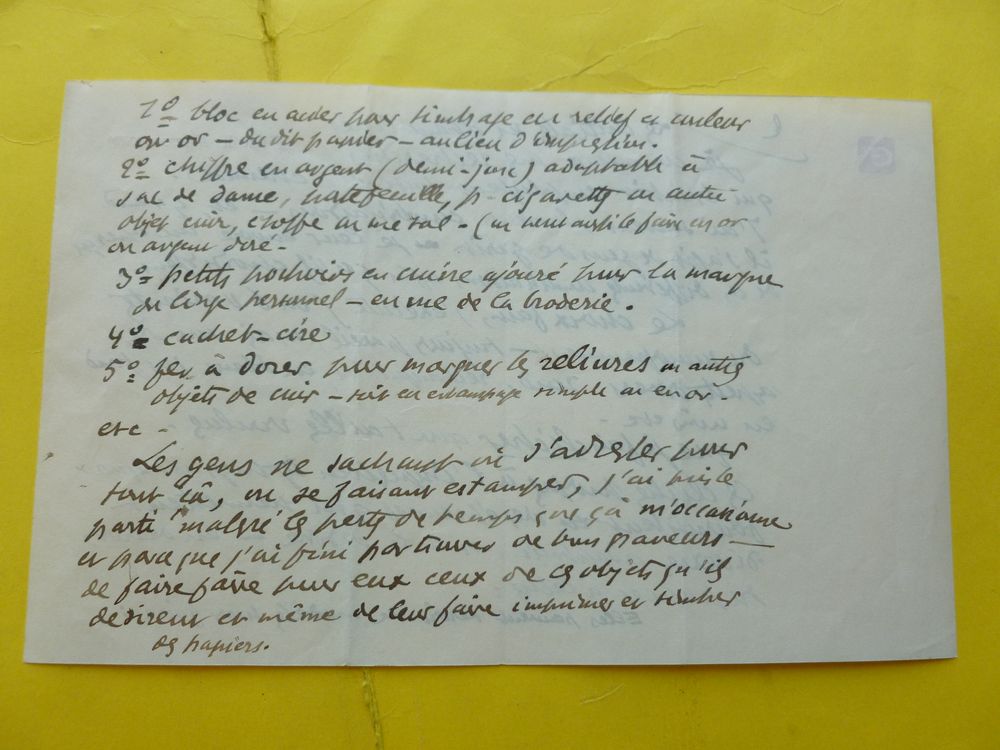 1º bloc en acier pour timbrage en relief en couleur
ou or – du dit papier – au lieu d'impression.
2º chiffre en argent (demi-jonc) adaptable à
sac de dame, portefeuille, p-cigarettes ou autre
objet cuir, étoffe ou métal – (on peut aussi le faire en or
ou argent doré –
3º petits pochoirs en cuivre ajouré pour la marque
du linge personnel – en vue de la broderie.
4º cachet-cire
5º fer à dorer pour marquer les reliures ou autres
objets de cuir – soit en estampage simple ou en or –
etc –
Les gens ne sachant où s'adresser pour
tout çà, ou se faisant estamper, j'ai pris le
parti malgré les pertes de temps que çà m'occasionne
et parce que j'ai fini par trouver de bons graveurs –
de faire faire pour eux ceux de ces objets qu'ils
désirent et même de leur faire imprimer et timbrer
des papiers.